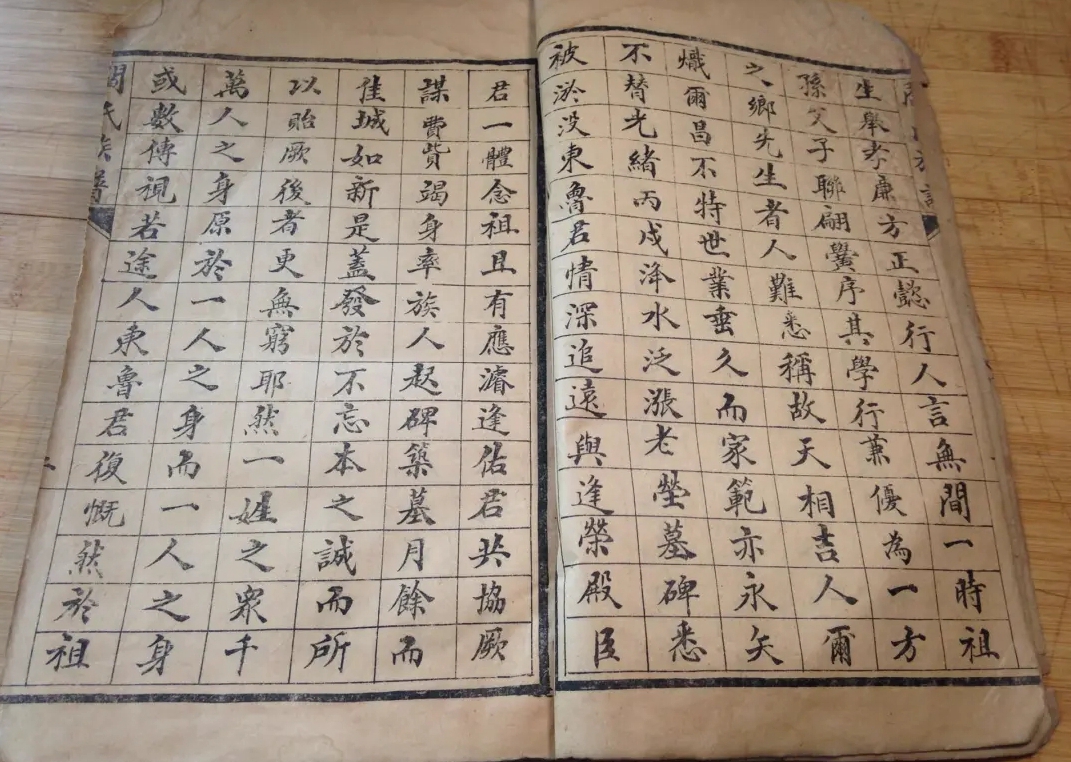 生舉孝廉方正懿行人言無間一時祖
孫父子聯翩黌序其學行兼優為一方
之鄉先生者人難悉稱故天相吉人爾
熾爾昌不特世業垂久而家範亦永矢
不替光緒丙戌洚水泛漲老塋墓碑悉
被淤没東魯君情深追遠與逢榮殿臣
君一體念祖且有應濬逢佑君共協厥
謀費貲竭身率族人起碑築墓月餘而
佳城如新是蓋發於不忘本之誠而所
以貽厥後者更無窮耶然一姓之衆千
萬人之身原於一人之身而一人之身
或數傳視若途人東魯君復慨然於祖
氏族譜